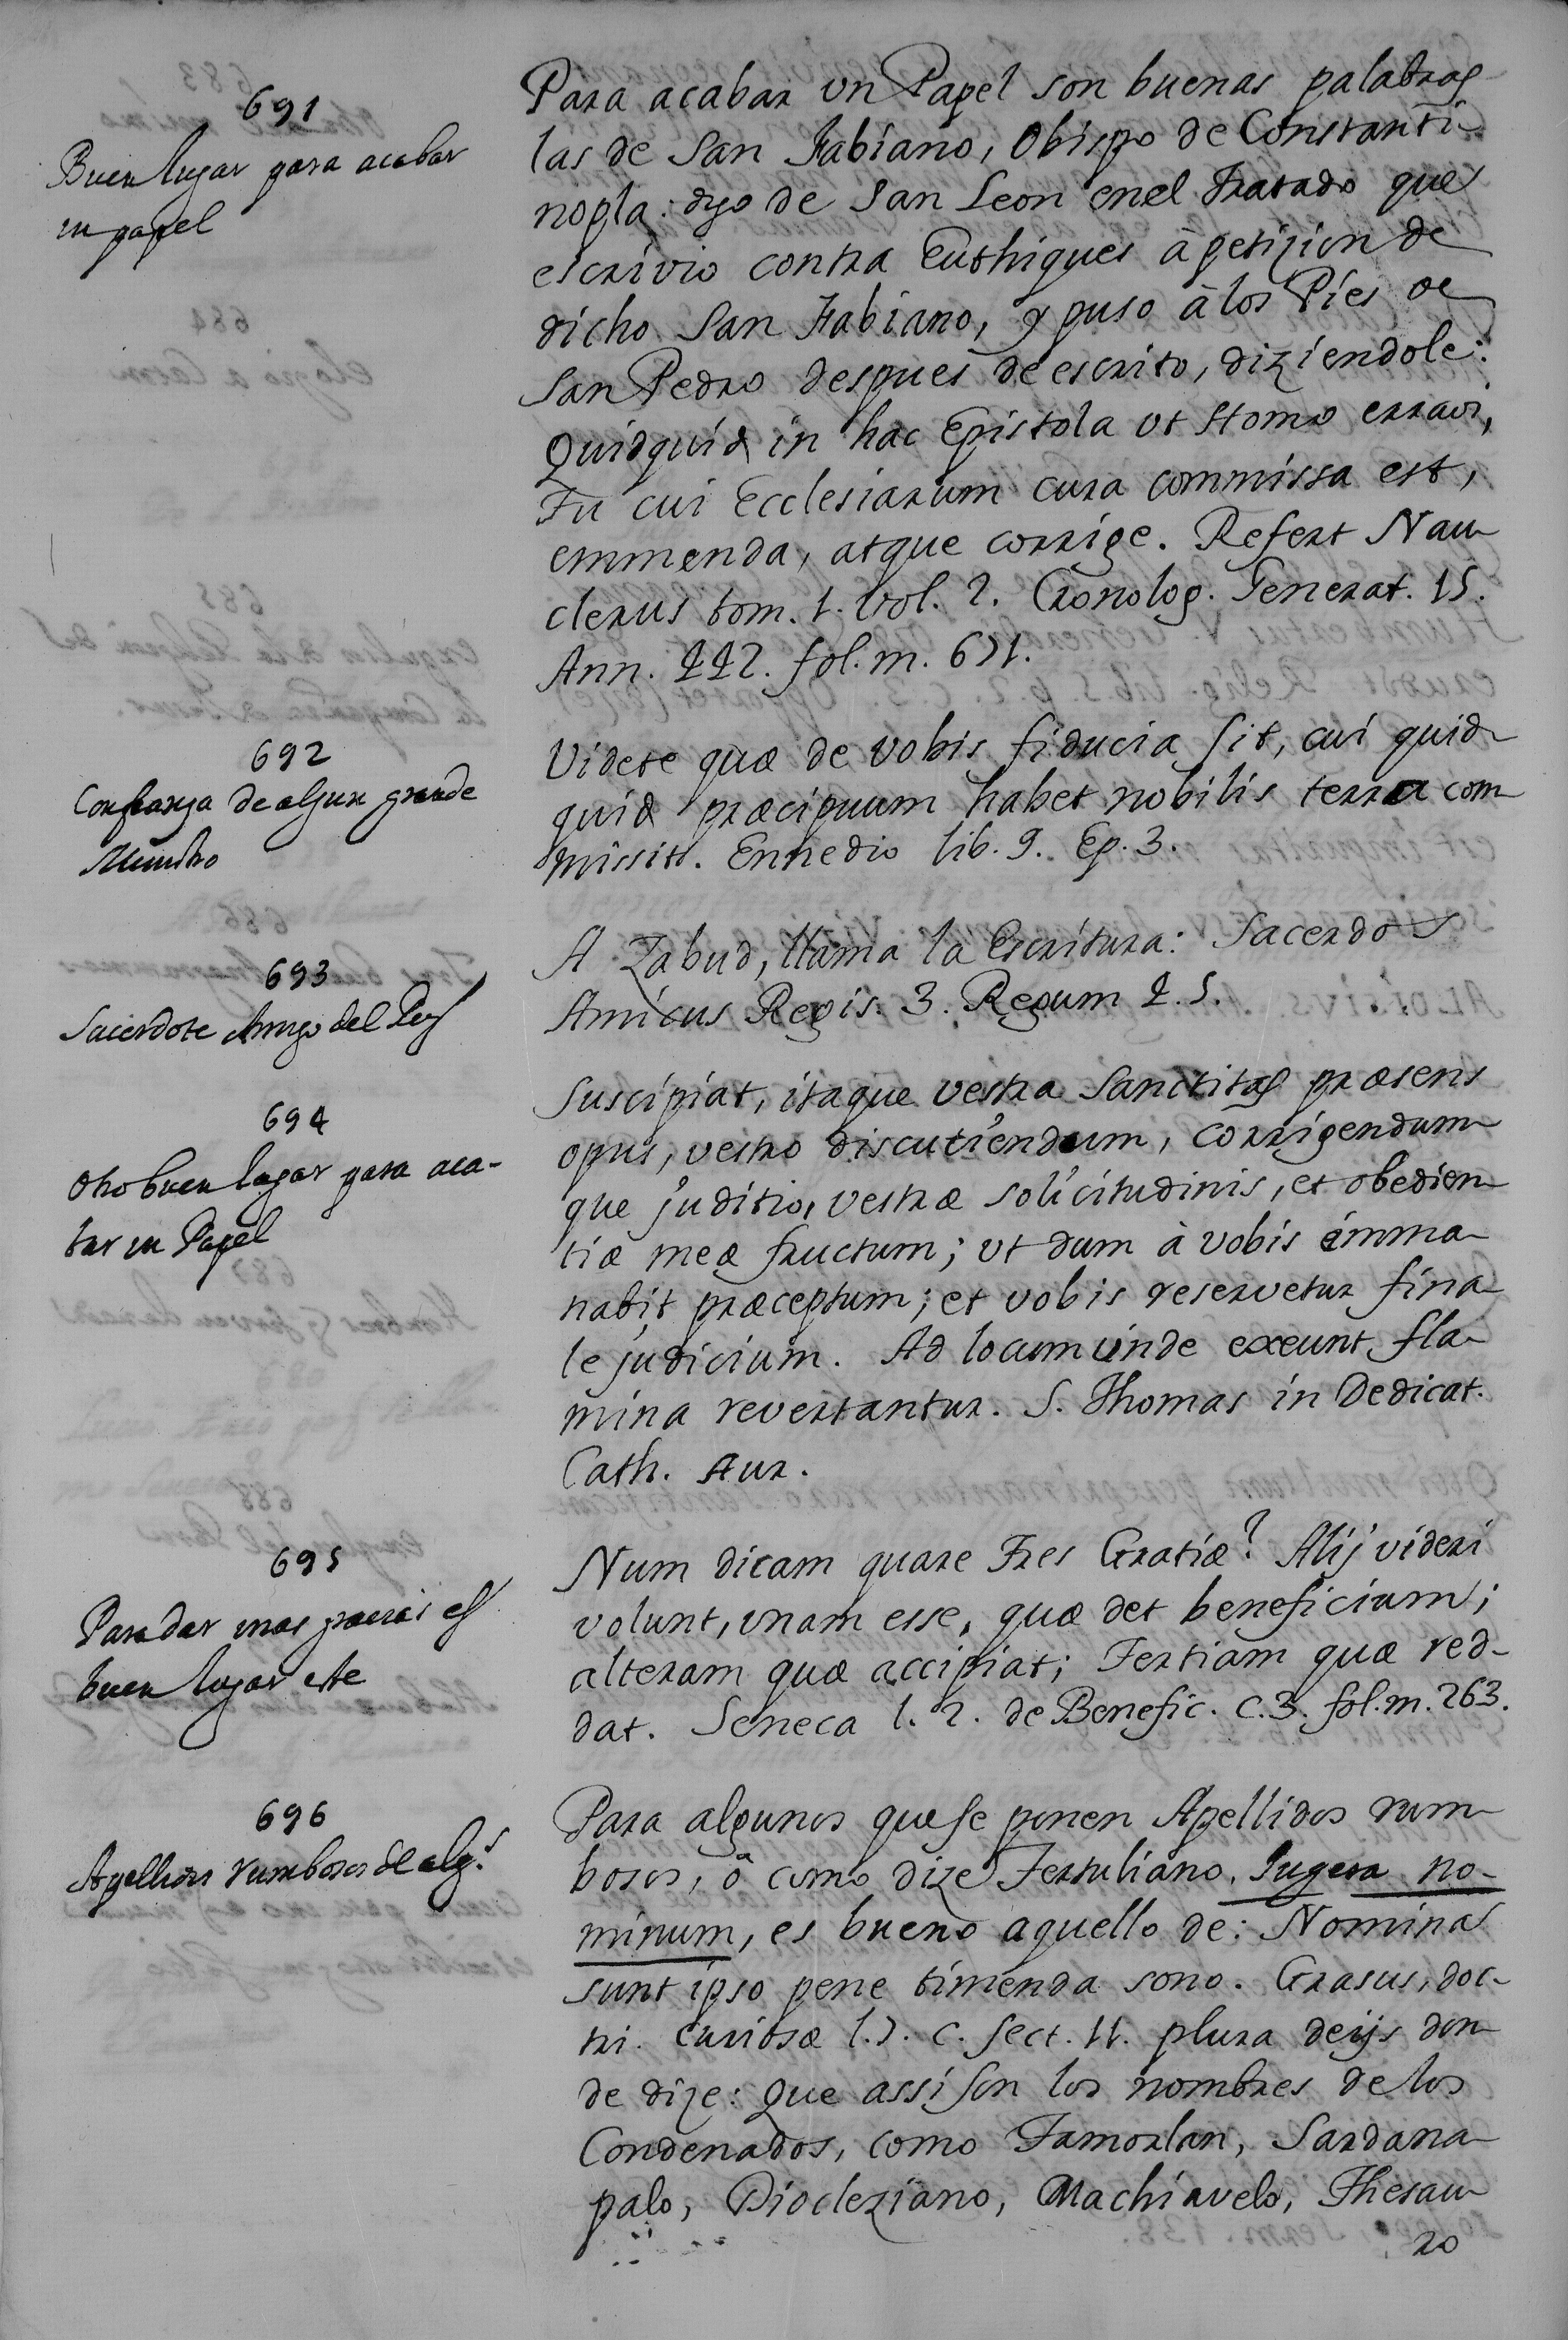 691
Buen lugar para acabar
un papel
Para acabar vn Papel son buenas palabras
las de San Fabiano, Obispo de Constanti-
nopla: dijo de San Leon enel Tratado que
escrivio contra Euthiques à petizion de
dicho San Fabiano, y puso à los Pies de
San Pedro despues de escrito, diziendole:
Quidquid in hac Epistola vt Homo erravi,
Tu cui Ecclesiarum cura commissa est,
emmenda, atque corrige. Refert Nau-
clerus tom. 1. vol. 2. Cronolog. Generat. 15.
Ann. 442. fol. m. 671.
692
Confianza de algun grande
Ministro
Videte quæ de vobis fiducia sit, cui quid-
quid præcipuum habet nobilis terra com-
missit. Ennedio lib. 9. Ep. 3.
693
Sacerdote Amigo del Rey
A Zabud, llama la Escritura: Sacerdos
Amicus Regis. 3. Regum 4. 5.
694
Otro buen lugar para aca-
bar un Papel
Suscipiat, itaque vestra Sanctitas præsens
opus, vestro discutiendum, corrigendum-
que juditio, vestræ solicitudinis, et obedien-
tiæ meæ fructum; vt dum à vobis émma-
nabit præceptum; et vobis reservetur fina-
le judicium. Ad locum unde exeunt, fla-
mina revertantur. S. Thomas in Dedicat.
Cath. Aur.
695
Para dar unas gracias es
buen lugar este
Num dicam quare Tres Gratiæ? Alij videri
volunt, vnam esse, quæ det beneficium;
alteram quæ accipiat; Tertiam quæ red-
dat. Seneca l. 2. de Benefic. c. 3. fol. m. 263.
696
Apellidos rumbosos de algs
Para algunos que se ponen Apellidos rum-
bosos, ò como dize Tertuliano. Iugera no-
minum, es bueno aquello de: Nomina
sunt ipso pene timenda sono. Grasus, doc-
tri. curiosæ l. 7. c. sect. 11. plura deijs don-
de dize: Que assi son los nombres de los
Condenados, como Tamorlan, Sardana-
palo, Diocleziano, Machiavelo, Thesau-
ro